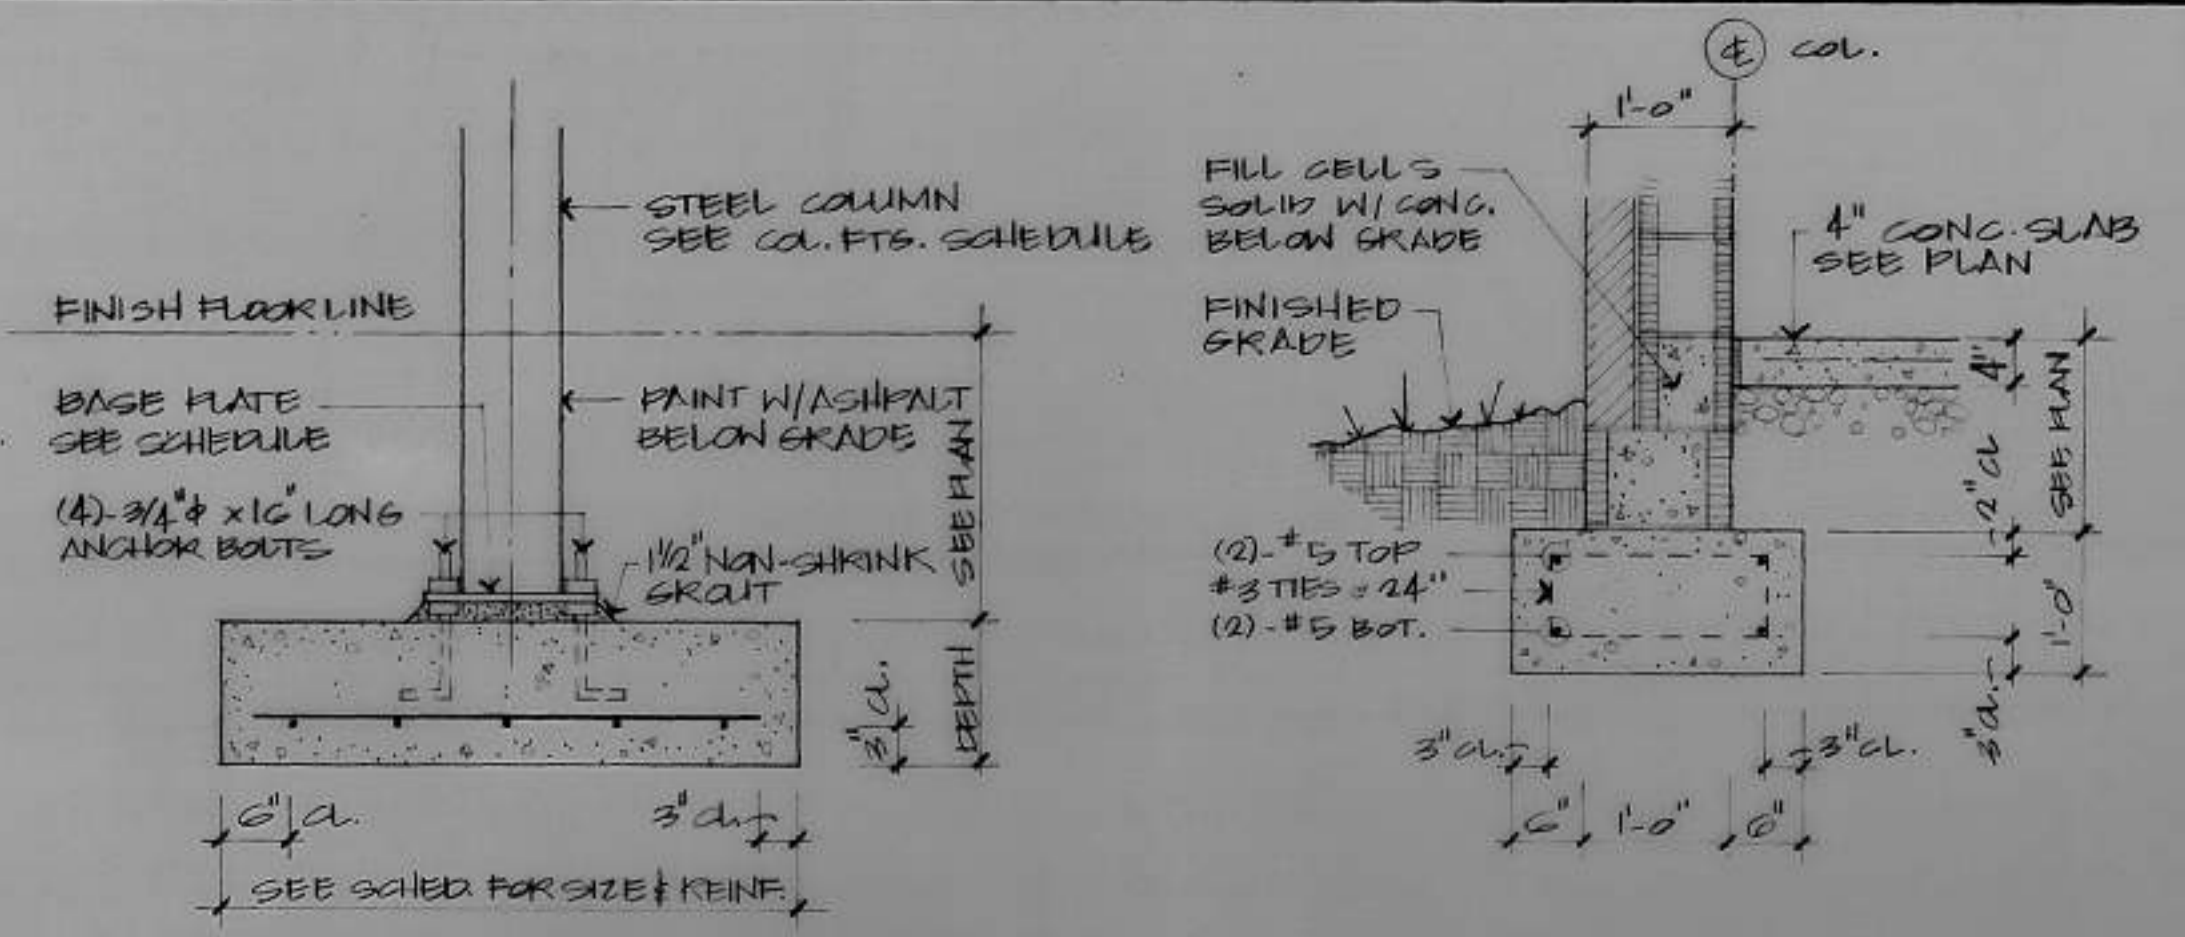 STEEL COLUMN
SEE COL. FTG. SCHEDULE
FINISH FLOOR LINE
BASE PLATE
SEE SCHEDULE
PAINT W/ASHPALT
BELOW GRADE
(4)-3/4"ϕ x 16" LONG
ANCHOR BOLTS
1 1/2" NON-SHRINK
GROUT
SEE PLAN
DEPTH
3" CL.
6" CL.
3" CL.
SEE SCHED. FOR SIZE & REINF.
℄ COL.
1'-0"
FILL CELLS
SOLID W/ CONC.
BELOW GRADE
4" CONC. SLAB
SEE PLAN
FINISHED
GRADE
4"
SEE PLAN
2" CL
(2)-#5 TOP
#3 TIES @ 24"
(2)-#5 BOT.
1'-0"
3" CL.
3" CL.
3" CL.
6"
1'-0"
6"